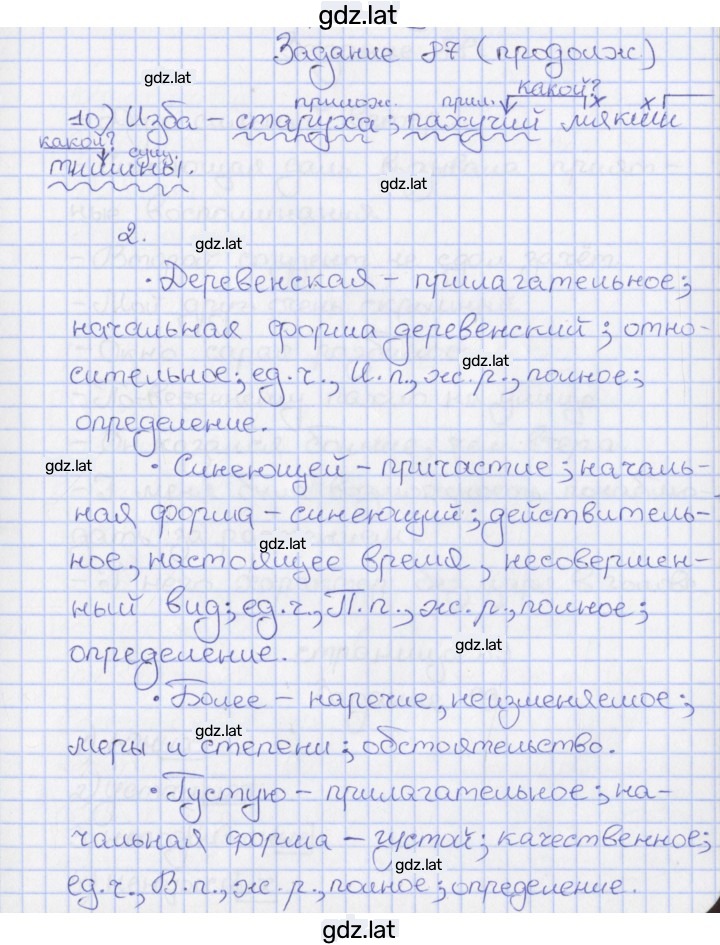 gdz.lat
Задание 87 (продолж.)
gdz.lat
какой?
прилож. прил. х х
10) Изба – старуха; пахучий мякиш
какой? сущ.
тишины.
gdz.lat
2.
gdz.lat
• Деревенская – прилагательное;
начальная форма деревенский; отно-
gdz.lat
сительное; ед.ч., И.п., ж.р., полное;
определение.
gdz.lat
• Синеющей – причастие; началь-
ная форма – синеющий; действитель-
gdz.lat
ное, настоящее время, несовершен-
ный вид; ед.ч., П.п., ж.р., полное;
gdz.lat
определение.
• Более – наречие, неизменяемое;
gdz.lat
меры и степени; обстоятельство.
• Густую – прилагательное; на-
чальная форма – густой; качественное;
gdz.lat
ед.ч., В.п., ж.р., полное; определение.
gdz.lat